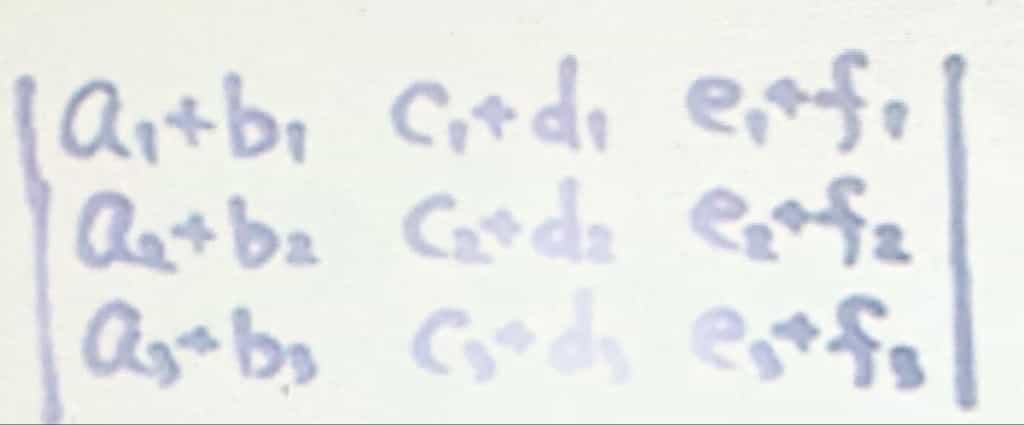 | a₁+b₁ c₁+d₁ e₁+f₁ |
| a₂+b₂ c₂+d₂ e₂+f₂ |
| a₃+b₃ c₃+d₃ e₃+f₃ |